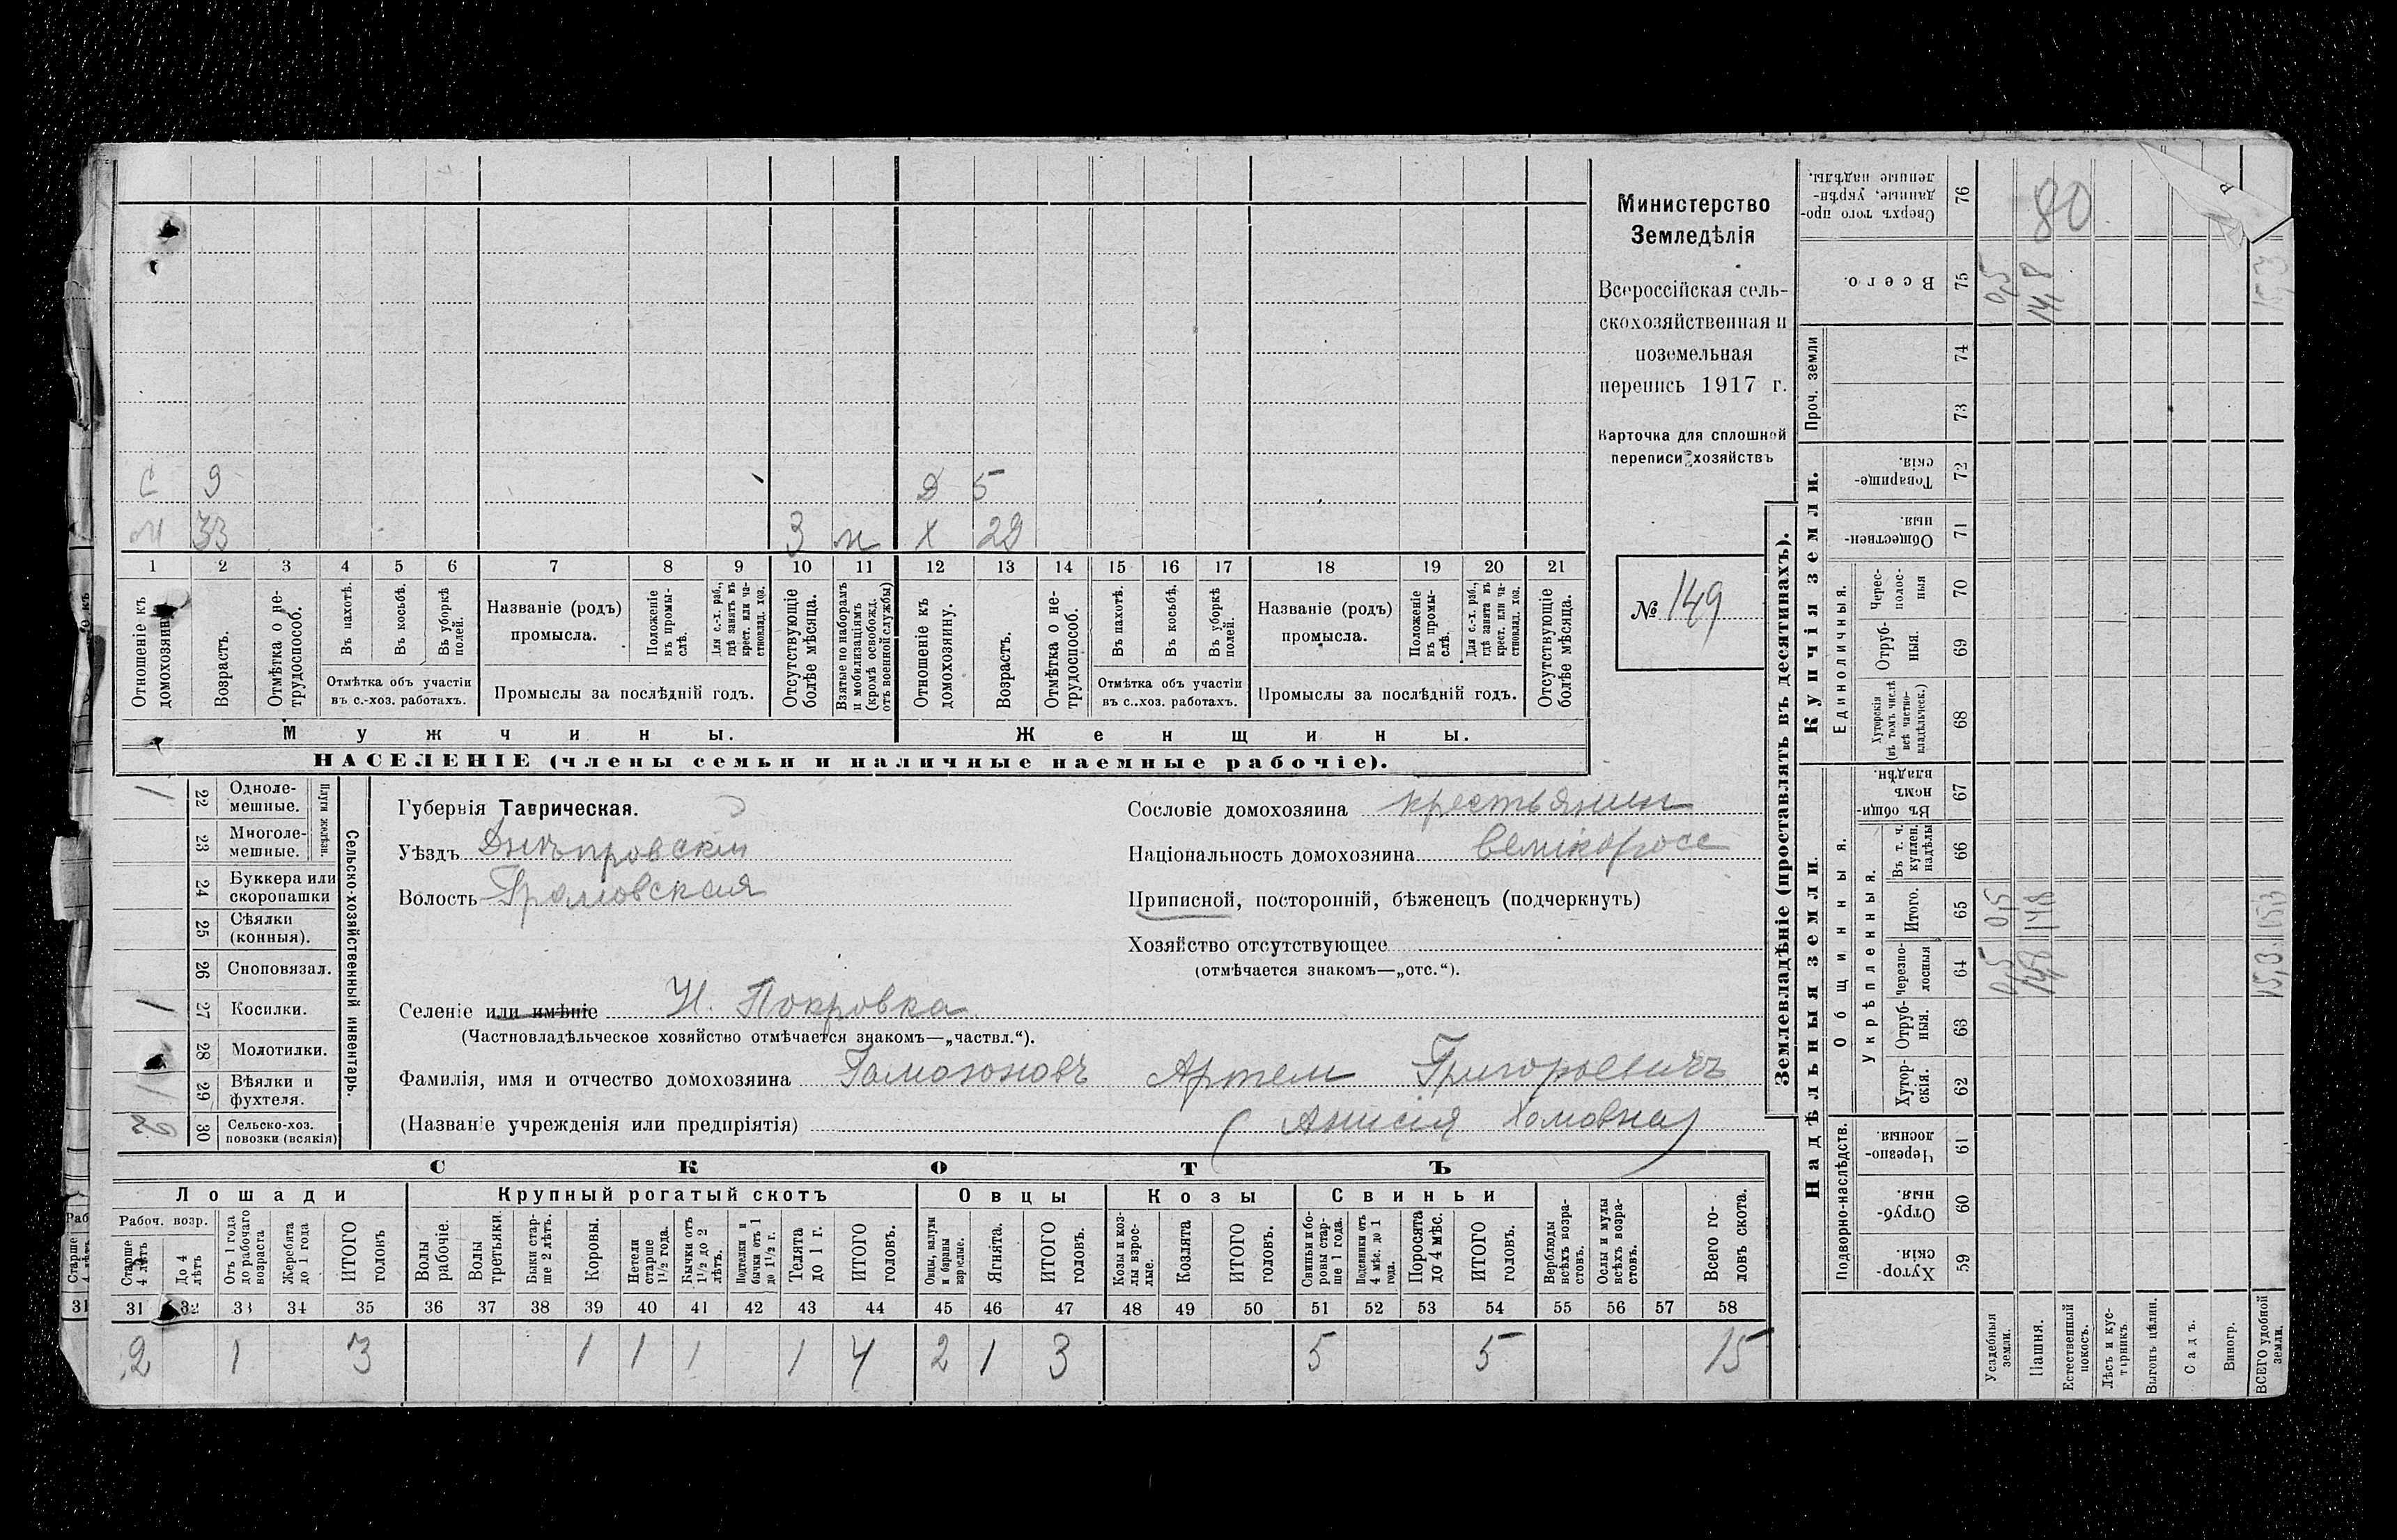 С 9 Д 5
М 33 3 м Х 29
1 2 3 4 5 6 7 8 9 10 11 12 13 14 15 16 17 18 19 20 21
Отношеніе къ домохозяину.
Возрастъ.
Отмѣтка о не-трудоспособ.
Въ пахотѣ.
Въ косьбѣ.
Въ уборкѣ полей.
Отмѣтка объ участіи въ с.-хоз. работахъ.
Названіе (родъ) промысла.
Положеніе въ промы-слѣ.
Для с.-х. раб., гдѣ занятъ въ крест. или ча-стновлад. хоз.
Промыслы за послѣдній годъ.
Отсутствующіе болѣе мѣсяца.
Взятые по наборамъ и мобилизаціямъ (кромѣ освобожд. отъ военной службы)
Отношеніе къ домохозяину.
Возрастъ.
Отмѣтка о не-трудоспособ.
Въ пахотѣ.
Въ косьбѣ.
Въ уборкѣ полей.
Отмѣтка объ участіи въ с.-хоз. работахъ.
Названіе (родъ) промысла.
Положеніе въ промы-слѣ.
Для с.-х. раб., гдѣ занята въ крест. или ча-стновлад. хоз.
Промыслы за послѣдній годъ.
Отсутствующіе болѣе мѣсяца.
Мужчины. Женщины.
НАСЕЛЕНІЕ (члены семьи и наличные наемные рабочіе).
Министерство
Земледѣлія
Всероссійская сель-
скохозяйственная и
поземельная
перепись 1917 г.
Карточка для сплошной
переписи хозяйствъ
№ 149
Сельско-хозяйственный инвентарь.
Плуги желѣзн.
1 22 Одноле-мешные.
23 Многоле-мешные.
24 Буккера или скоропашки
25 Сѣялки (конныя).
26 Сноповязал.
1 27 Косилки.
28 Молотилки.
1 29 Вѣялки и фухтеля.
30 Сельско-хоз. повозки (всякія)
Губернія Таврическая.
Уѣздъ Днѣпровскій
Волость Громовская
Сословіе домохозяина крестьянинъ
Національность домохозяина великоросс
Приписной, посторонній, бѣженецъ (подчеркнуть)
Хозяйство отсутствующее
(отмѣчается знакомъ—„отс.“).
Селеніе или имѣніе Н. Покровка
(Частновладѣльческое хозяйство отмѣчается знакомъ—„частвл.“).
Фамилія, имя и отчество домохозяина Гамазоновъ Артем Григорьевичъ
(Названіе учрежденія или предпріятія) (Анисія Хомовна)
СКОТЪ
Лошади Крупный рогатый скотъ Овцы Козы Свиньи
Рабоч. возр.
Старше 4 лѣтъ
До 4 лѣтъ
Отъ 1 года до рабочаго возраста
Жеребята до 1 года
ИТОГО головъ
Волы рабочіе.
Волы третьяки.
Быки стар-ше 2 лѣтъ.
Коровы.
Нетели старше 1½ года.
Бычки отъ 1½ до 2 лѣтъ.
Подтелки и бычки отъ 1 до 1½ г.
Телята до 1 г.
ИТОГО головъ.
Овцы, валухи и бараны взрослые.
Ягнята.
ИТОГО головъ.
Козы и коз-лы взрос-лые.
Козлята
ИТОГО головъ.
Свиньи и бо-ровы стар-ше 1 года.
Подсвинки отъ 4 мѣс. до 1 года.
Поросята до 4 мѣс.
ИТОГО головъ.
Верблюды всѣхъ возра-стовъ.
Ослы и мулы всѣхъ возра-стовъ.
Всего го-ловъ скота.
31 32 33 34 35 36 37 38 39 40 41 42 43 44 45 46 47 48 49 50 51 52 53 54 55 56 57 58
2 1 3 1 1 1 1 4 2 1 3 5 5 15
Землевладѣніе (проставлять въ десятинахъ).
Надѣльныя земли. Купчія земли.
Подворно-наслѣдств.
Общинныя.
Укрѣпленныя.
Единоличныя.
Проч. земли
Сверхъ того про-данные, укрѣп-ленные надѣлы. 76 80
Всего. 75 0,5 14,8 15,3
74
73
Товарище-скія. 72
Обществен-ныя. 71
Черес-полос-ныя 70
Отруб-ныя. 69
Хуторскія (въ томъ числѣ всѣ частно-владѣльческ.) 68
Въ общи-номъ владѣн. 67
Въ т. ч. куплен. надѣлы 66
Итого. 65 0,5 14,8 15,3
Черезпо-лосныя 64 0,5 14,8 15,3
Отруб-ныя. 63
Хутор-скія. 62
Черезпо-лосныя 61
Отруб-ныя. 60
Хутор-скія. 59
Усадебныя земли.
Пашня.
Естественный покосъ.
Лѣсъ и кус-тарникъ
Выгонъ цѣлин.
Садъ.
Виногр.
ВСЕГО удобной земли.